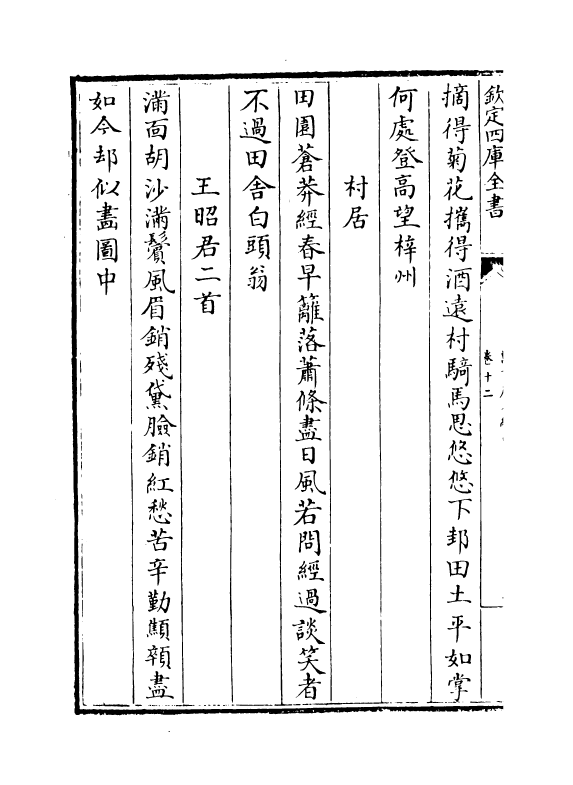 欽定四庫全書
卷十二
摘得菊花攜得酒遠村騎馬思悠悠下邽田土平如掌
何處登高望梓州
村居
田園蒼莽經春早籬落蕭條盡日風若問經過談笑者
不過田舍白頭翁
王昭君二首
滿面胡沙滿鬢風眉銷殘黛臉銷紅愁苦辛勤顦顇盡
如今却似畵圖中